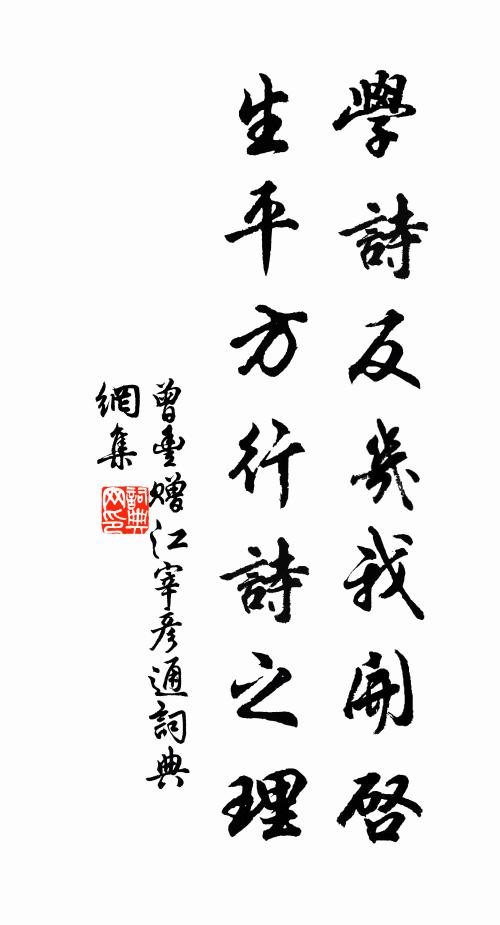 學詩反幾我開啓
生平方行詩之理
曾豐贈江宰彥通詞典
網集
詞典
网印